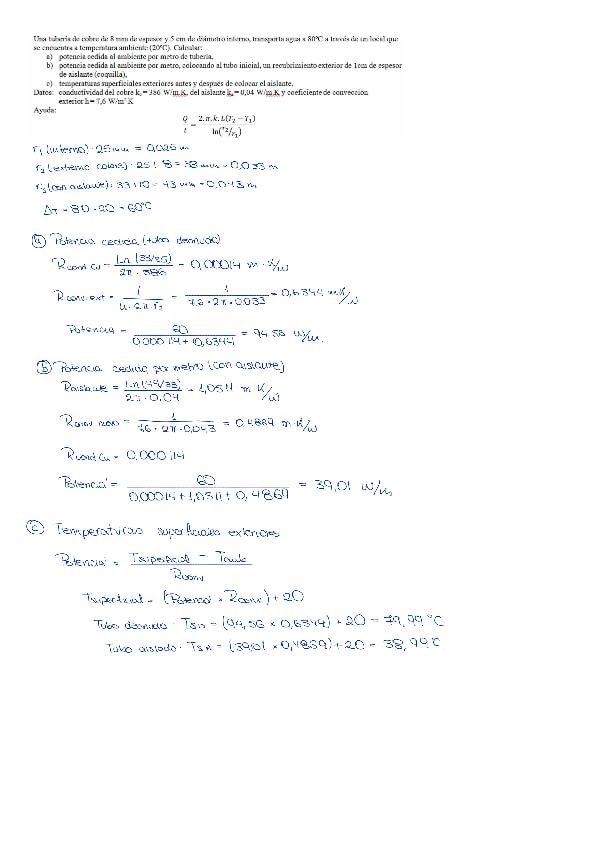 Una tubería de cobre de 8 mm de espesor y 5 cm de diámetro interno, transporta agua a 80ºC a través de un local que
se encuentra a temperatura ambiente (20ºC). Calcular:
a) potencia cedida al ambiente por metro de tubería,
b) potencia cedida al ambiente por metro, colocando al tubo inicial, un recubrimiento exterior de 1cm de espesor
de aislante (coquilla),
c) temperaturas superficiales exteriores antes y después de colocar el aislante.
Datos: conductividad del cobre kc = 386 W/m.K, del aislante ka = 0,04 W/m.K y coeficiente de convección
exterior h = 7,6 W/m² K
Ayuda:
Q/t = 2.π.k.L(T2 − T1) / ln(r2/r1)
r1 (interno) · 25 mm = 0,025 m
r2 (externo cobre) · 25 + 8 = 33 mm = 0,033 m
r3 (con aislante): 33+10 = 43 mm = 0,043 m
ΔT = 80 - 20 = 60ºC
a) Potencia cedida (tubo desnudo)
Rcond Cu = Ln (33/25) / 2π · 386 = 0,00014 m · K/W
Rconv. ext = 1 / h · 2π · r2 = 1 / 7,6 · 2π · 0,033 = 0,6344 mK/W
Potencia = 60 / 0,00014 + 0,6344 = 94,56 W/m.
b) Potencia cedida por metro (con aislante)
Raislante = Ln (43/33) / 2π · 0,04 = 1,0511 m · K/W
Rconv nuevo = 1 / 7,6 · 2π · 0,043 = 0,4869 m · K/W
Rcond Cu = 0,00014
Potencia' = 60 / 0,00014 + 1,0511 + 0,4869 = 39,01 W/m
c) Temperaturas superficiales exteriores
Potencia' = Tsuperficial − Tamb / Rconv
Tsuperficial = (Potencia' × Rconv) + 20
Tubo desnudo · Ts,D = (94,56 × 0,6344) + 20 = 79,99 °C
Tubo aislado · Ts,A = (39,01 × 0,4869) + 20 = 38,99 °C